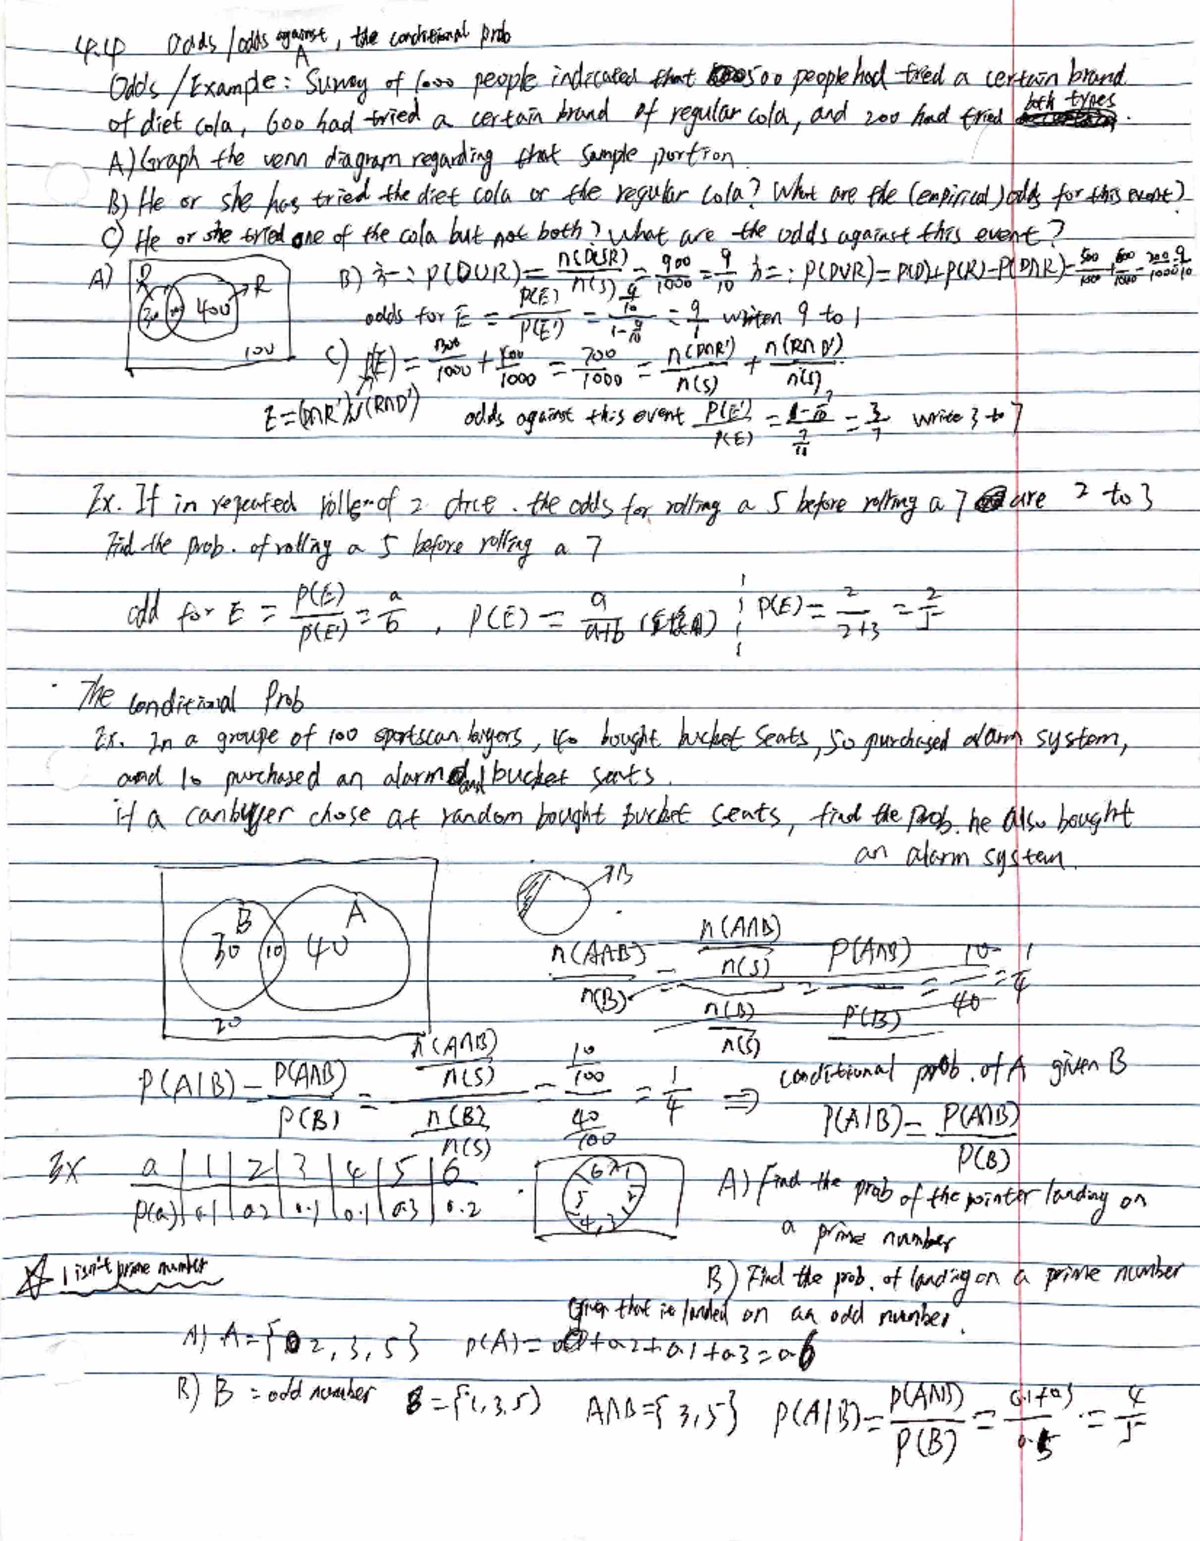 4.4 Odds/odds against, the conditional prob
A
Odds/Example: Survey of 1000 people indicated that 500 people had tried a certain brand
of diet cola, 600 had tried a certain brand of regular cola, and 200 had tried both types.
A) Graph the venn diagram regarding that sample portion.
B) He or she has tried the diet cola or the regular cola? What are the (empirical) odds for this event?
C) He or she tried one of the cola but not both? What are the odds against this event?
A) D R 400 100
B) P(D∪R) = n(D∪R)/n(S) = 900/1000 = 9/10 P(D∪R) = P(D)+P(R)-P(D∩R) = 500/1000 + 600/1000 - 200/1000 = 9/10
odds for E = P(E)/P(E') = (9/10)/(1-9/10) = 9/1 written 9 to 1
C) P(E) = 300/1000 + 400/1000 = 700/1000 = n(D∩R')/n(S) + n(R∩D')/n(S)
E = (D∩R')∪(R∩D') odds against this event P(E')/P(E) = (1-7/10)/(7/10) = 3/7 write 3 to 7
Ex. If in repeated rolls of 2 dice. the odds for rolling a 5 before rolling a 7 are 2 to 3
Find the prob. of rolling a 5 before rolling a 7
odd for E = P(E)/P(E') = a/b , P(E) = a/(a+b) P(E) = 2/(2+3) = 2/5
The conditional Prob
Ex. In a groupe of 100 sportscar buyers, 40 bought bucket seats, 50 purchased alarm system,
and 10 purchased an alarm and bucket seats.
if a car buyer chose at random bought bucket seats, find the prob. he also bought
an alarm system.
B A 30 10 40 20
B
n(A∩B)/n(B) = (n(A∩B)/n(S))/(n(B)/n(S)) = P(A∩B)/P(B) = 10/40 = 1/4
P(A|B) = P(A∩B)/P(B) = (n(A∩B)/n(S))/(n(B)/n(S)) = (10/100)/(40/100) = 1/4 ⇒ conditional prob. of A given B
P(A|B) = P(A∩B)/P(B)
Ex a | 1 | 2 | 3 | 4 | 5 | 6
P(a) | 0.1 | 0.2 | 0.1 | 0.1 | 0.3 | 0.2
A) Find the prob of the pointer landing on
a prime number
☆ 1 isn't prime number
B) Find the prob. of landing on a prime number
Given that is landed on an odd number.
A) A = {2, 3, 5} P(A) = 0.2+0.1+0.3 = 0.6
B) B = odd number B = {1, 3, 5} A∩B = {3, 5} P(A|B) = P(A∩B)/P(B) = (0.1+0.3)/0.5 = 4/5